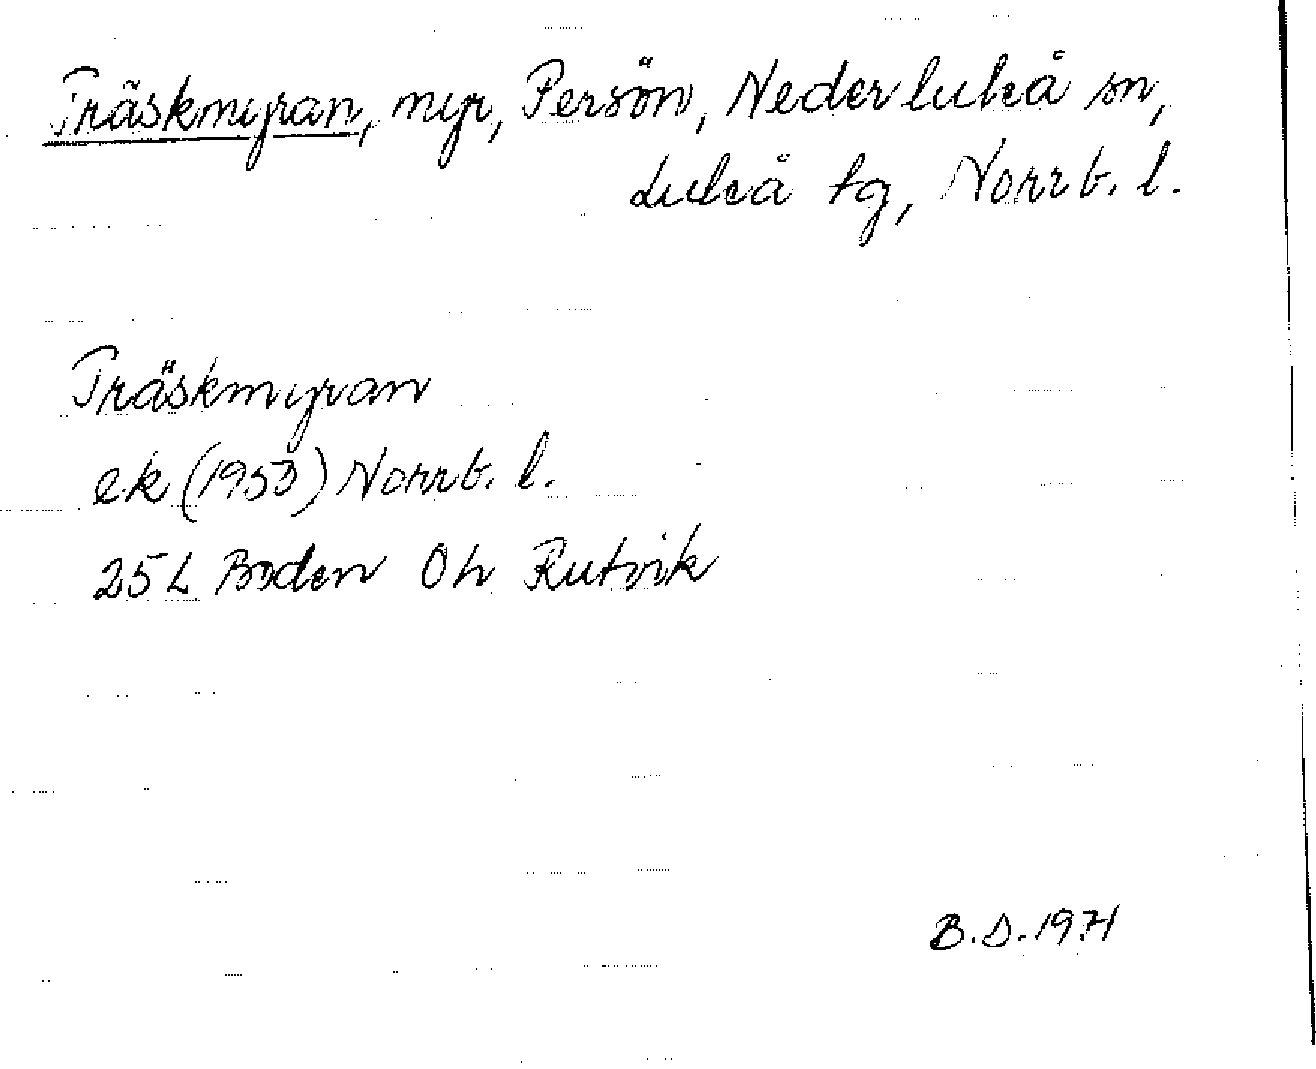 Träskmyran, myr, Persön, Nederluleå sn,
Luleå tg, Norrb. l.
Träskmyran
ek (1953) Norrb. l.
25L Boden 0h Rutvik
B.D. 1971